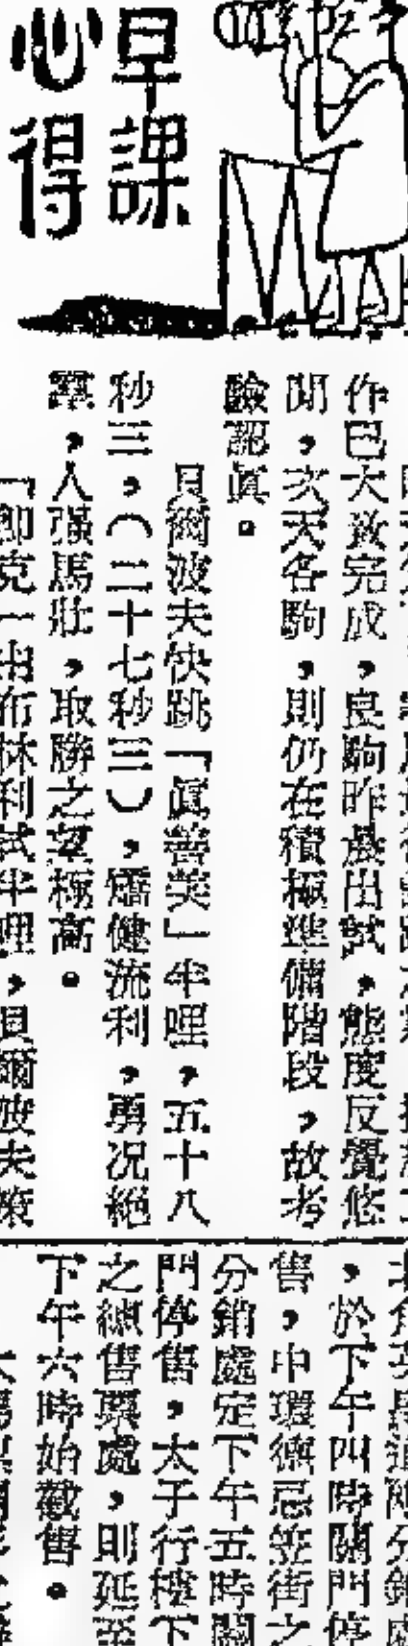 早課
心得
作已大致完成，良駒昨晨出試，態度反覺悠
閒，次天各駒，則仍在積極準備階段，故考
驗認眞。
貝爾波夫快跳「眞善美」半哩，五十八
秒三，（二十七秒三），矯健流利，勇况絕
羣，人强馬壯，取勝之望極高。
「卽克」由布林利試半哩，貝爾波夫策
，於下午四時關門停
售，中環德忌笠街之
分銷處定下午五時關
門停售，太子行樓下
之總售票處，則延至
下午六時始截售。